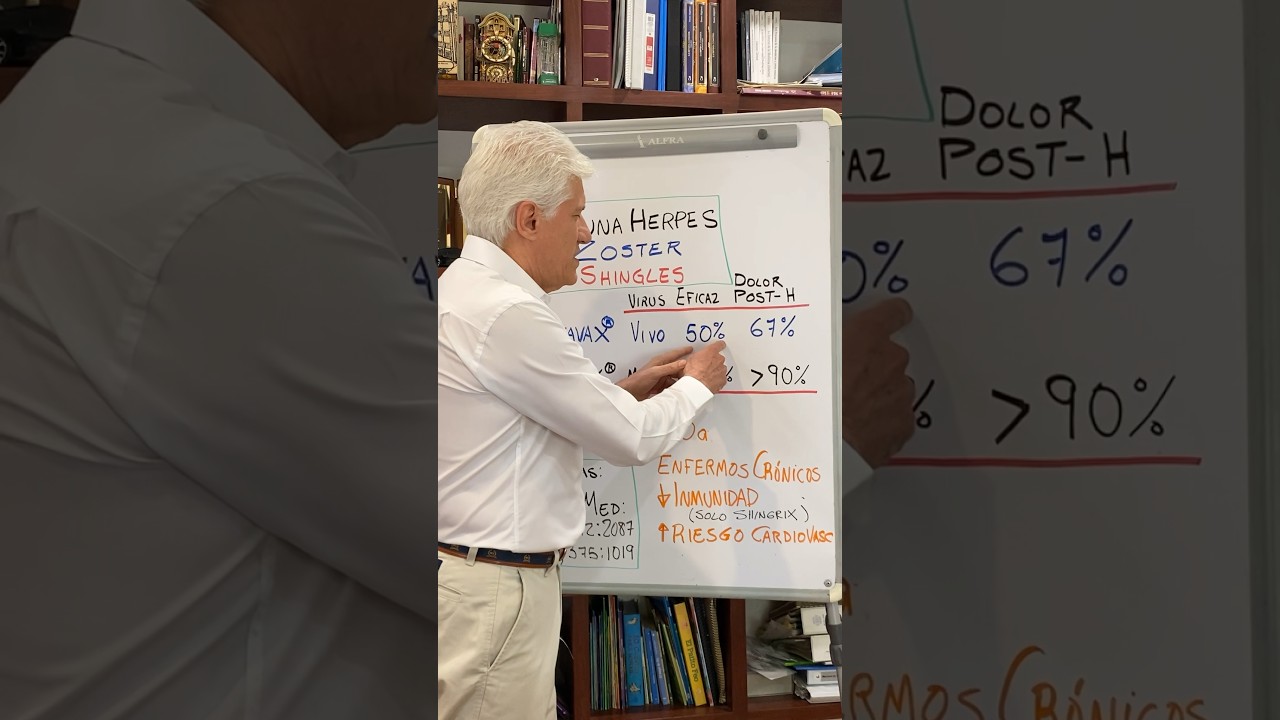 ALFRA
UNA HERPES
ZOSTER
SHINGLES
VIRUS EFICAZ DOLOR POST-H
AVAX® VIVO 50% 67%
® % >90%
0a
ENFERMOS CRÓNICOS
↓ INMUNIDAD
(SOLO SHINGRIX)
↑ RIESGO CARDIOVASC
S:
MED:
2:2087
375:1019
DOLOR
AZ POST-H
0% 67%
% >90%
RMOS CRÓNICOS